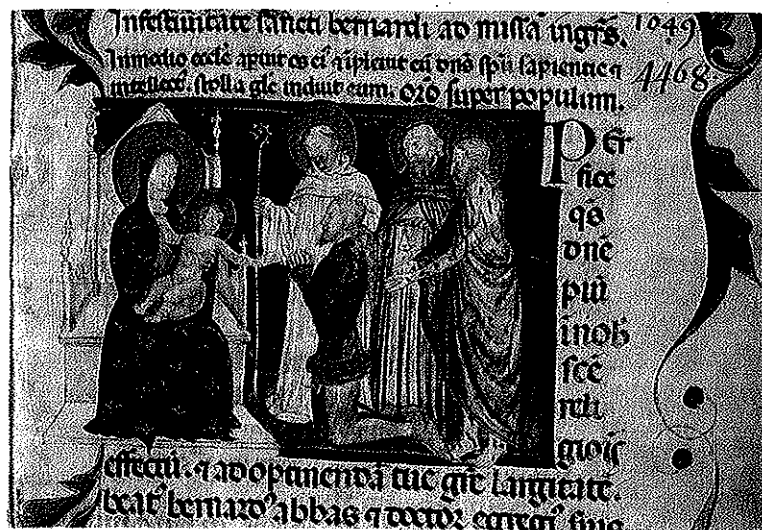 In festiuitate sancti bernardi ad missã ingrs̃. 1649
In medio eccłe aperuit os ei᾽ ⁊ ipleuit eũ dñs spũ sapientie ⁊ 4468
intellect᾽. stollã głe induit eum. Orõ super populum.
Per
fice
qs̃
dñe
piũ
in nob᾽
scẽ
reli
gõis
effectũ. ⁊ ad optinendã tue grẽ largitatẽ.
beat᾽ bernard᾽ abbas ⁊ doctor